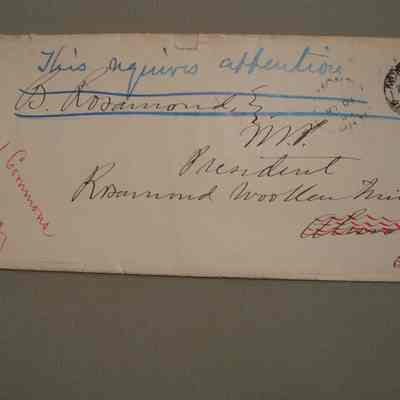 This requires attention
B. Rosamond,
M.P.
President
Rosamond Woollen
Commons